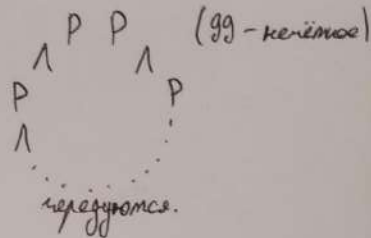 Р Р (99 - нечётное)
Л Л
Р Р
Л
чередуются.